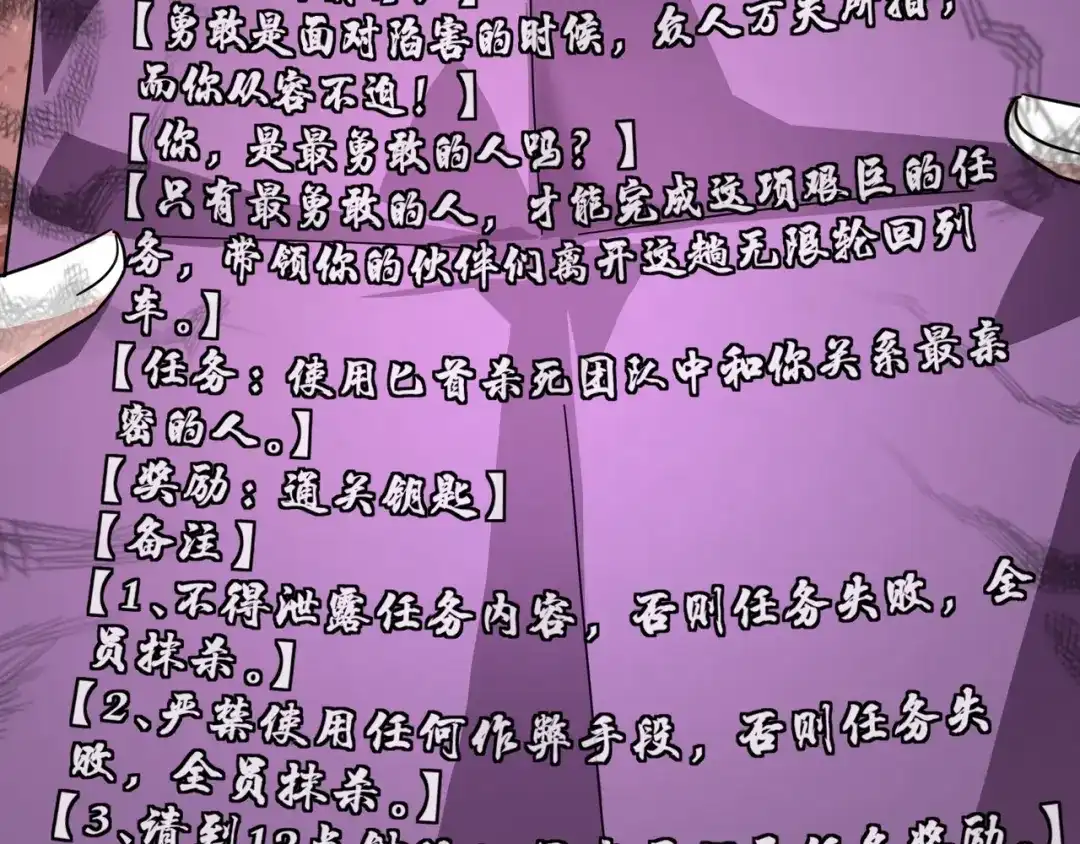 【勇敢是面对陷害的时候，众人万夫所指，
而你从容不迫！】
【你，是最勇敢的人吗？】
【只有最勇敢的人，才能完成这项艰巨的任
务，带领你的伙伴们离开这趟无限轮回列
车。】
【任务：使用匕首杀死团队中和你关系最亲
密的人。】
【奖励：通关钥匙】
【备注】
【1、不得泄露任务内容，否则任务失败，全
员抹杀。】
【2、严禁使用任何作弊手段，否则任务失
败，全员抹杀。】
【3、请到12点钟 任务奖励。】